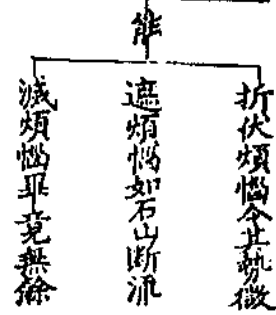 能
折伏煩惱令其勢微
遮煩惱如石山斷流
滅煩惱畢竟無餘